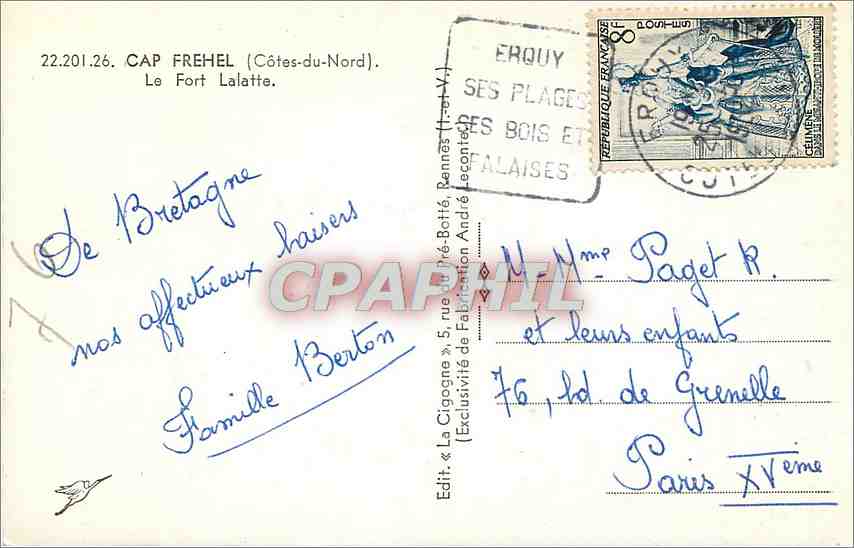 22.201.26. CAP FREHEL (Côtes-du-Nord).
Le Fort Lalatte.
De Bretagne
nos affectueux baisers
Famille Berton
76
Edit. « La Cigogne », 5, rue du Pré-Botté, Rennes (I.-et-V.)
(Exclusivité de Fabrication André Leconte)
ERQUY
SES PLAGES
SES BOIS ET
FALAISES
8F
POSTES
REPUBLIQUE FRANÇAISE
CELIMENE
DANS LE MISANTHROPE DE MOLIERE
ERQUY
M-Mme Paget R.
et leurs enfants
76, bd de Grenelle
Paris XVème
CPAPHIL